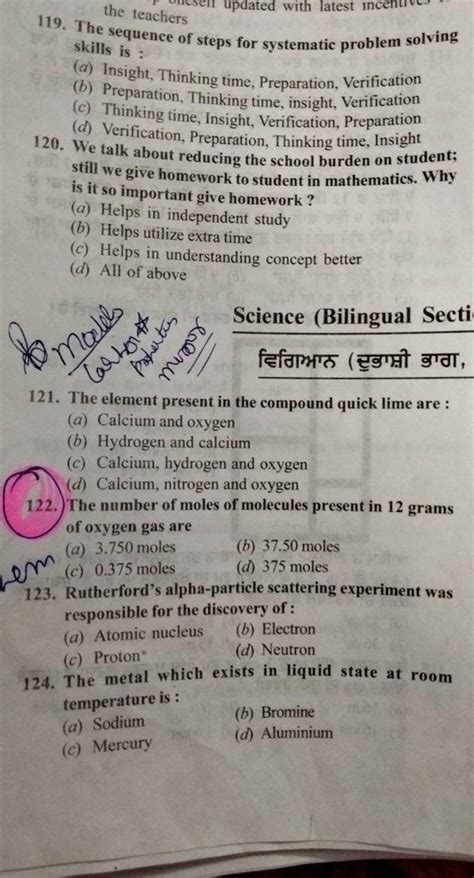 updated with latest
the teachers
119. The sequence of steps for systematic problem solving
skills is :
(a) Insight, Thinking time, Preparation, Verification
(b) Preparation, Thinking time, insight, Verification
(c) Thinking time, Insight, Verification, Preparation
(d) Verification, Preparation, Thinking time, Insight
120. We talk about reducing the school burden on student;
still we give homework to student in mathematics. Why
is it so important give homework ?
(a) Helps in independent study
(b) Helps utilize extra time
(c) Helps in understanding concept better
(d) All of above
Models
Science (Bilingual Secti
ਵਿਗਿਆਨ (ਦੁਭਾਸ਼ੀ ਭਾਗ,
121. The element present in the compound quick lime are :
(a) Calcium and oxygen
(b) Hydrogen and calcium
(c) Calcium, hydrogen and oxygen
(d) Calcium, nitrogen and oxygen
122. The number of moles of molecules present in 12 grams
of oxygen gas are
(a) 3.750 moles (b) 37.50 moles
(c) 0.375 moles (d) 375 moles
123. Rutherford's alpha-particle scattering experiment was
responsible for the discovery of :
(a) Atomic nucleus (b) Electron
(c) Proton (d) Neutron
124. The metal which exists in liquid state at room
temperature is :
(a) Sodium (b) Bromine
(c) Mercury (d) Aluminium